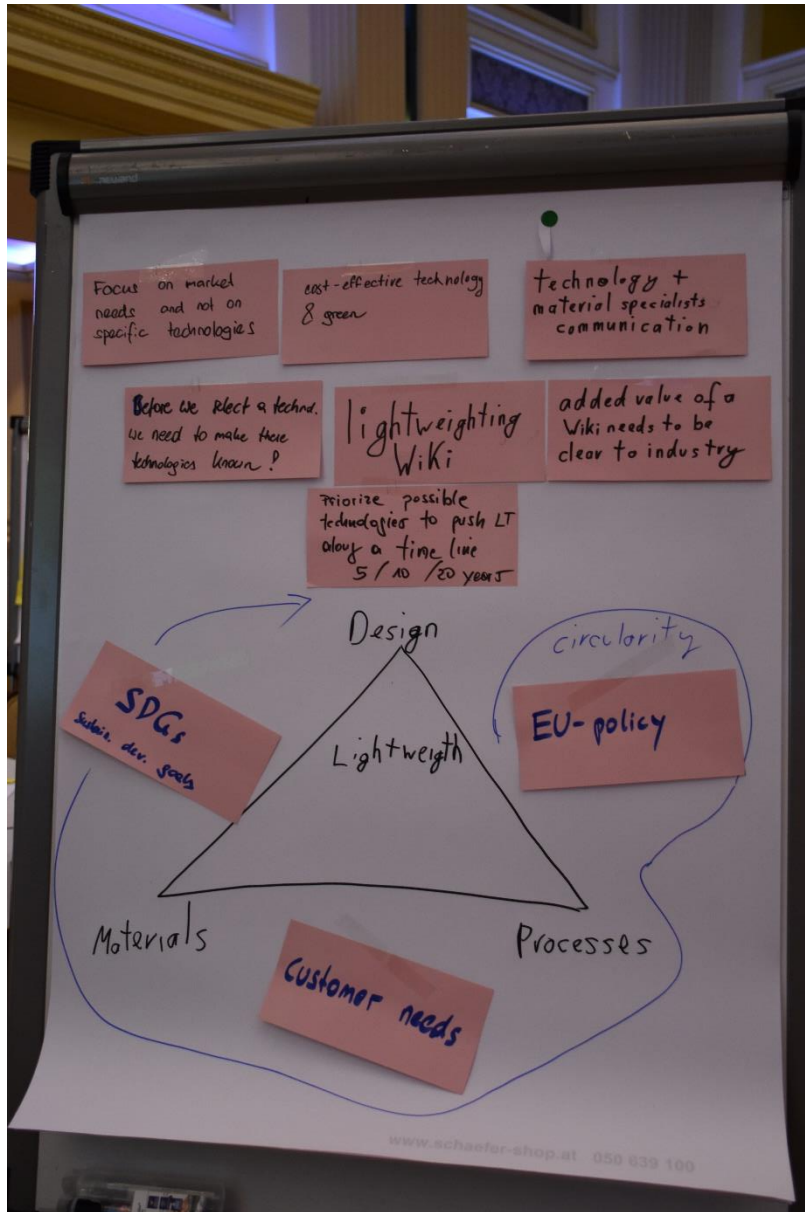 Focus on market
needs and not on
specific technologies
cost-effective technology
& green
technology +
material specialists
communication
Before we select a technol.
we need to make these
technologies known!
lightweighting
Wiki
added value of a
Wiki needs to be
clear to industry
Priorize possible
technologies to push LT
along a time line
5 / 10 / 20 years
Design
circularity
SDGs
Sustain. dev. goals
EU-policy
Lightweigth
Materials
Processes
Customer needs
www.schaefer-shop.at 050 639 100